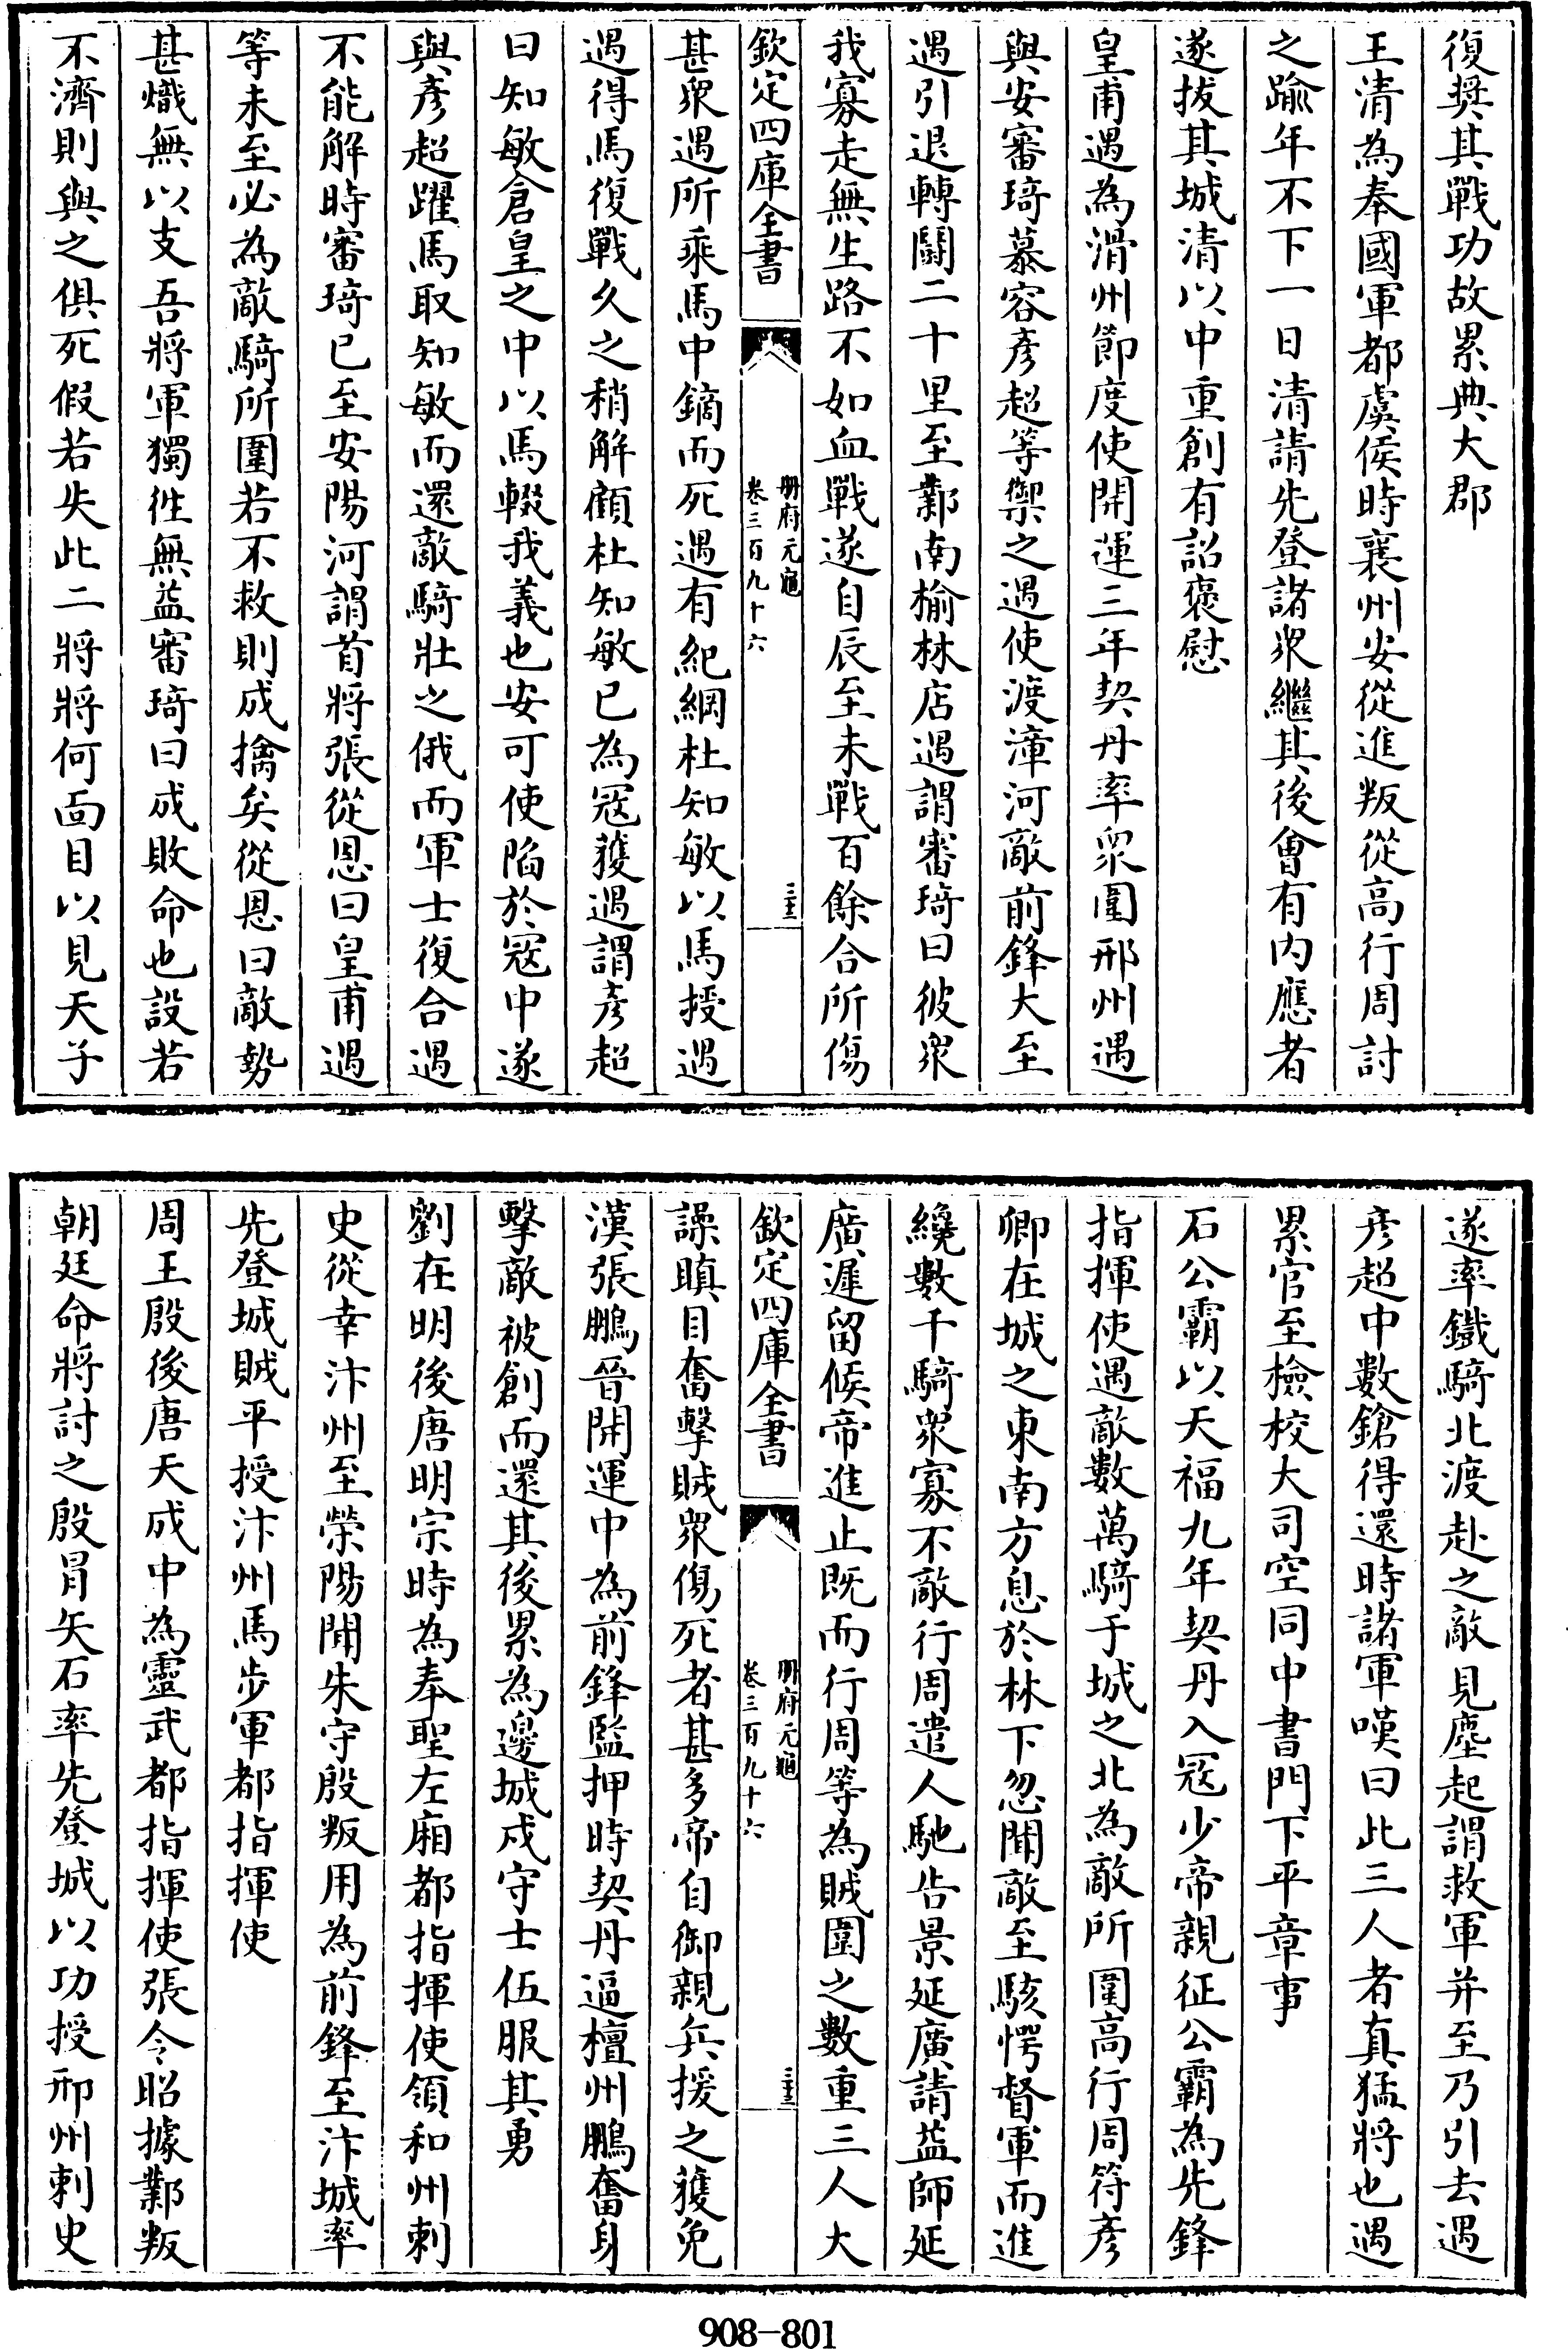 復奬其戰功故累典大郡
王清為奉國軍都虞侯時襄州安從進叛從高行周討
之踰年不下一日清請先登諸衆繼其後會有内應者
遂拔其城清以中重創有詔褒慰
皇甫遇為滑州節度使開運三年契丹率衆圍邢州遇
與安審琦慕容彥超等禦之遇使渡漳河敵前鋒大至
遇引退轉鬬二十里至鄴南榆林店遇謂審琦曰彼衆
我寡走無生路不如血戰遂自辰至未戰百餘合所傷
欽定四庫全書
册府元龜
卷三百九十六
三十三
甚衆遇所乘馬中鏑而死遇有紀綱杜知敏以馬授遇
遇得馬復戰久之稍解顧杜知敏已為冦獲遇謂彦超
曰知敏倉皇之中以馬輟我義也安可使陷於冦中遂
與彥超躍馬取知敏而還敵騎壯之俄而軍士復合遇
不能解時審琦已至安陽河謂首將張從恩曰皇甫遇
等未至必為敵騎所圍若不救則成擒矣從恩曰敵勢
甚熾無以支吾將軍獨往無益審琦曰成敗命也設若
不濟則與之俱死假若失此二將將何面目以見天子
遂率鐵騎北渡赴之敵見塵起謂救軍并至乃引去遇
彦超中數鎗得還時諸軍嘆曰此三人者真猛將也遇
累官至檢校大司空同中書門下平章事
石公霸以天福九年契丹入冦少帝親征公霸為先鋒
指揮使遇敵數萬騎于城之北為敵所圍高行周符彥
卿在城之東南方息於林下忽聞敵至駭愕督軍而進
纔數千騎衆寡不敵行周遣人馳告景延廣請益師延
廣遲留候帝進止既而行周等為賊圍之數重三人大
欽定四庫全書
册府元龜
卷三百九十六
三十三
譟瞋目奮擊賊衆傷死者甚多帝自御親兵援之獲免
漢張鵬晉開運中為前鋒監押時契丹逼檀州鵬奮身
擊敵被創而還其後累為邊城戍守士伍服其勇
劉在明後唐明宗時為奉聖左廂都指揮使領和州刺
史從幸汴州至滎陽聞朱守殷叛用為前鋒至汴城率
先登城賊平授汴州馬步軍都指揮使
周王殷後唐天成中為靈武都指揮使張令昭據鄴叛
朝廷命將討之殷冐矢石率先登城以功授邢州刺史
908-801